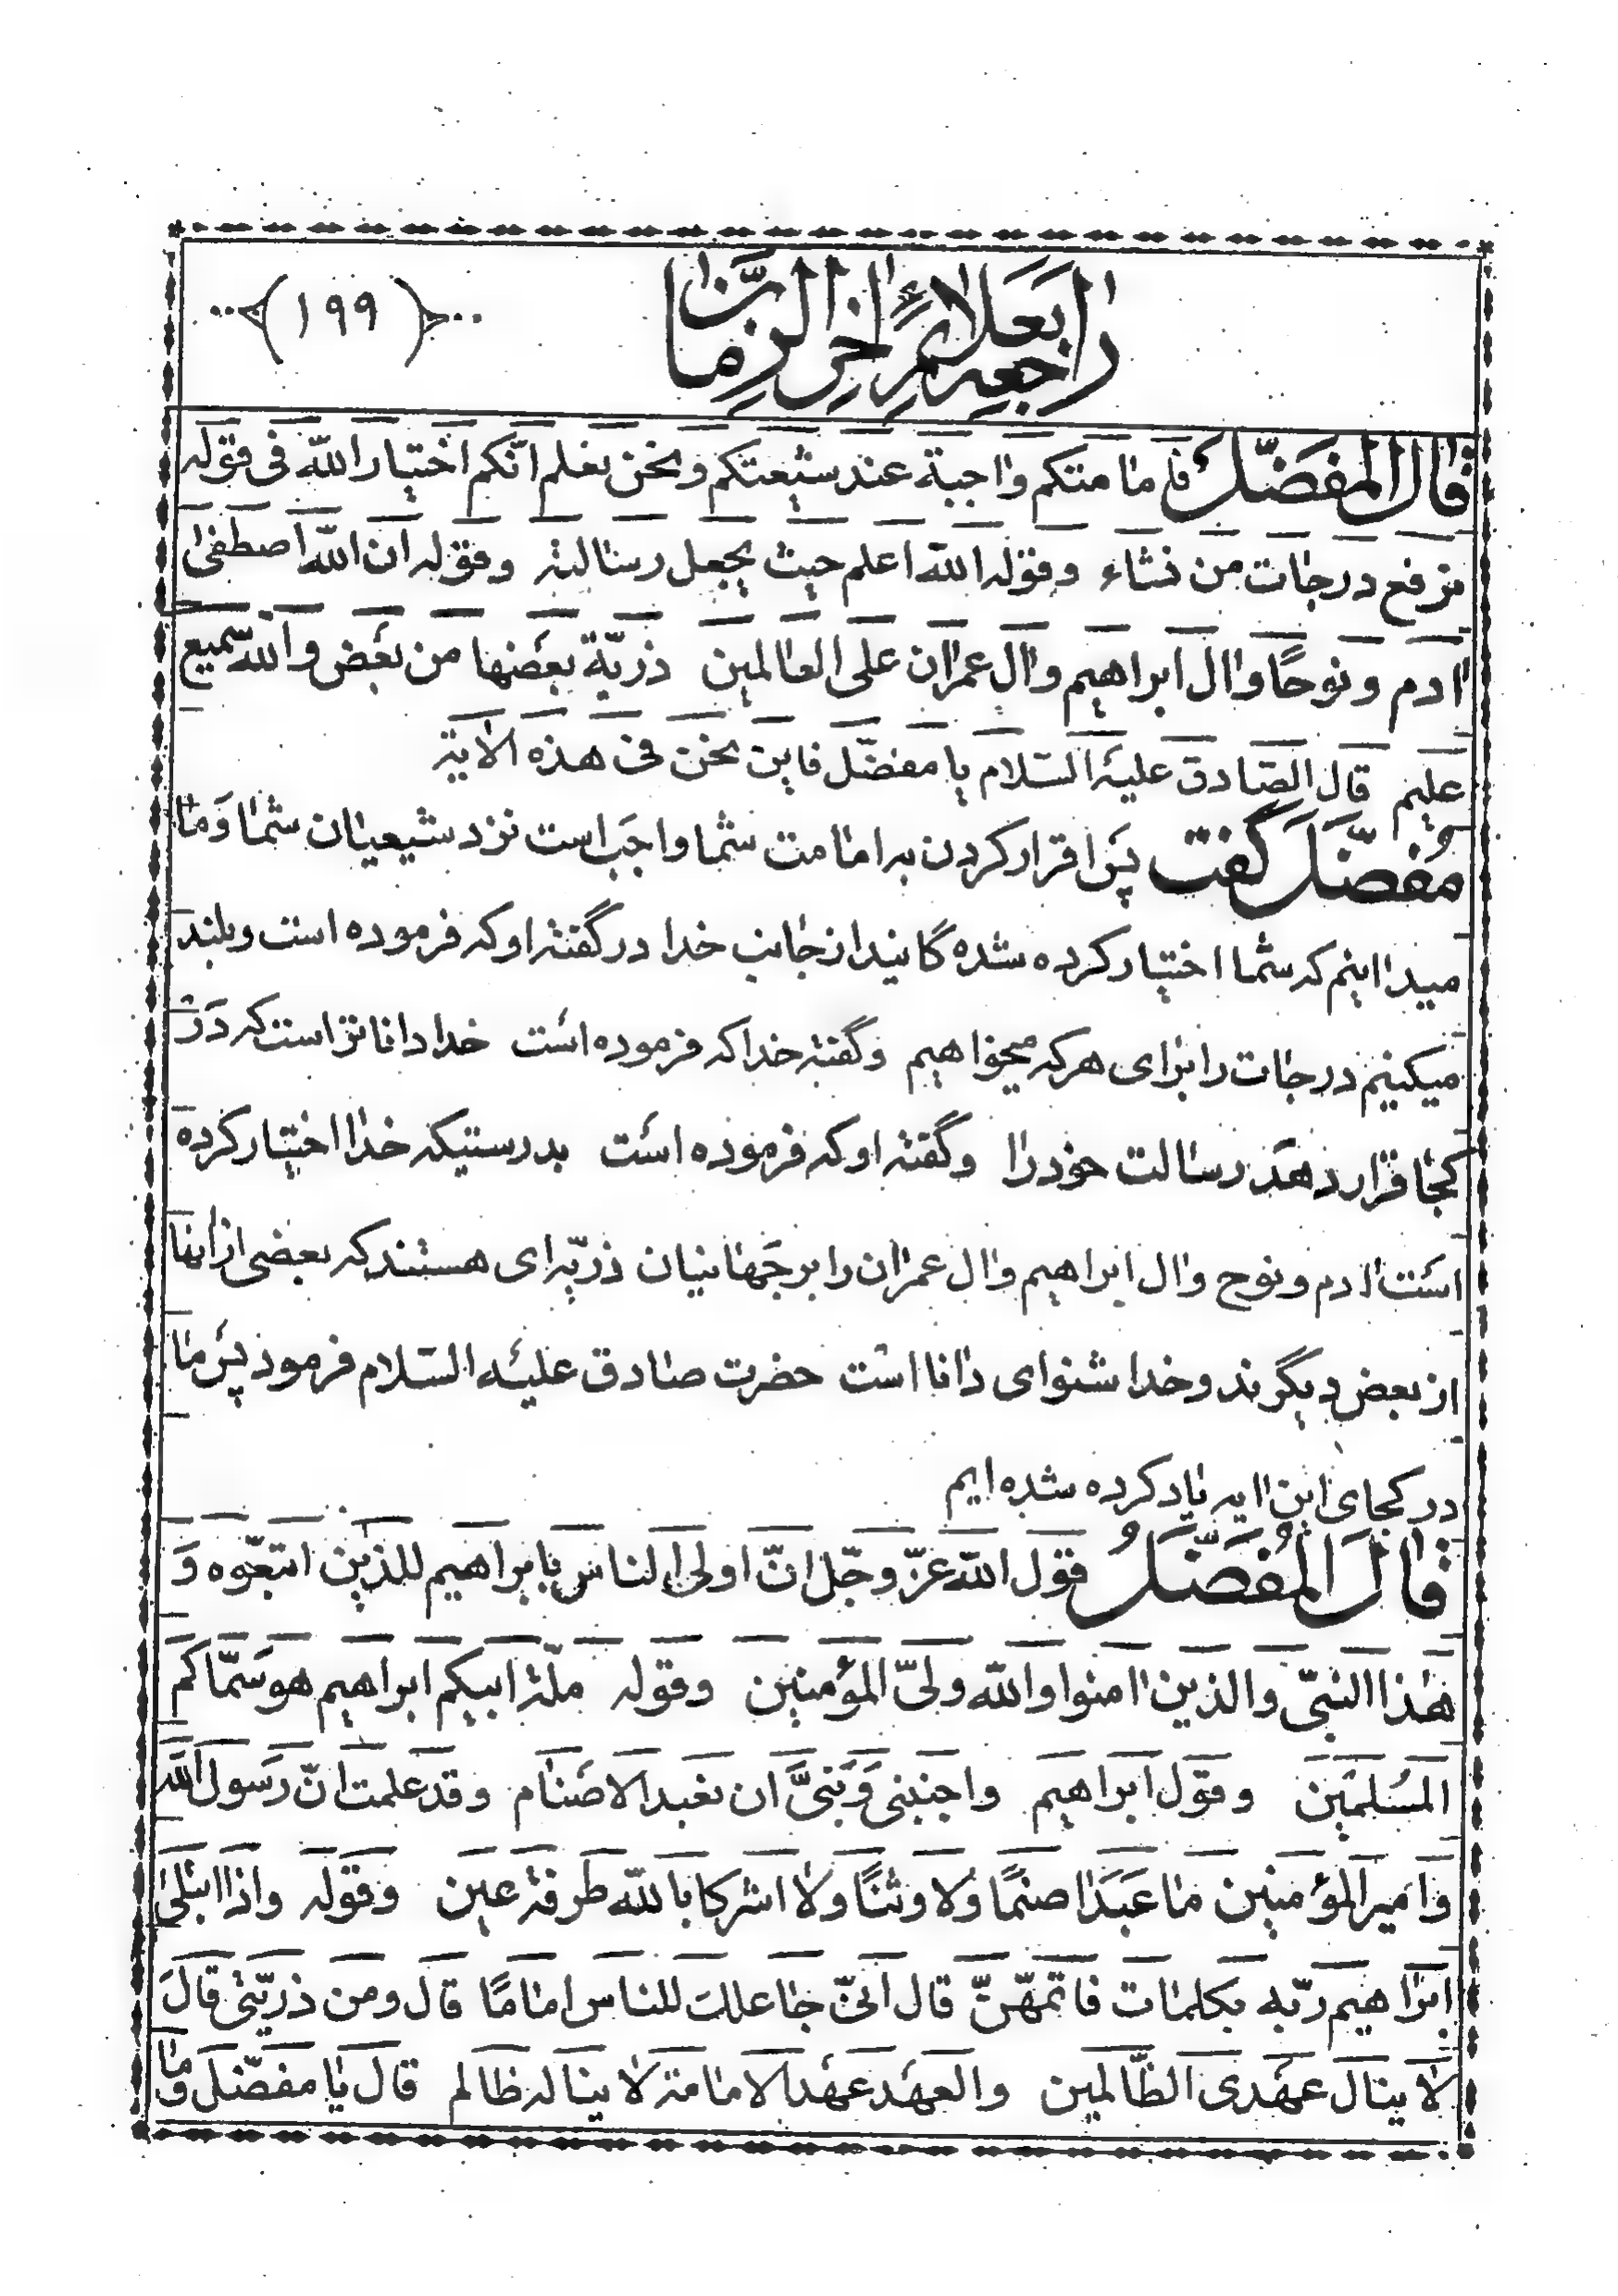 راجعه بعلائم اخر الزمان
(۱۹۹)
قال المفضّل فامامتكم واجبة عند شيعتكم ونحن نعلم انّكم اختيار الله فى قوله
نرفع درجات من نشاء وقوله الله اعلم حيث يجعل رسالته وقوله ان الله اصطفى
ادم ونوحًا وال ابراهيم وال عمران على العالمين ذريّة بعضها من بعض والله سميع
عليم قال الصّادق عليه السّلام يا مفضّل فاين نحن فى هذه الاية
مُفضّل گفت پس اقرار كردن به امامت شما واجب است نزد شيعيان شما و ما
ميدانيم كه شما اختيار كرده شده گانيد از جانب خدا در گفته او كه فرموده است و بلند
ميكنيم درجات را براى هر كه ميخواهيم و گفته خدا كه فرموده است خدا داناتر است كه در
كجا قرار دهد رسالت خود را و گفته او كه فرموده است بدرستيكه خدا اختيار كرده
است ادم و نوح و ال ابراهيم و ال عمران را بر جهانيان ذريّه اى هستند كه بعضى از انها
از بعض ديگرند و خدا شنواى دانا است حضرت صادق عليه السّلام فرمود پس ما
در كجاى اين ايه ياد كرده شده ايم
قال المُفضّلُ فقول الله عزّ وجّل انّ اولى الناس بابراهيم للذين اتبعّوه وَ
هذا النبىّ والذين امنوا والله ولىّ المؤمنين وقوله ملّة ابيكم ابراهيم هو سمّاكم
المسلمين وقول ابراهيم واجنبنى وَبَنىَّ ان نعبد الاصنام وقد علمت انّ رسول الله
وامير المؤمنين ما عَبَدَا صنمًا ولا وثنًا ولا اشركا بالله طرفة عين وقوله واذا ابتلى
ابراهيم ربّه بكلمات فاتمّهنّ قال انىّ جاعلك للناس امامًا قال ومن ذريّتى قال
لا ينال عهدى الظّالمين والعهد عهد الامامة لا يناله ظالم قال يا مفضّل وما